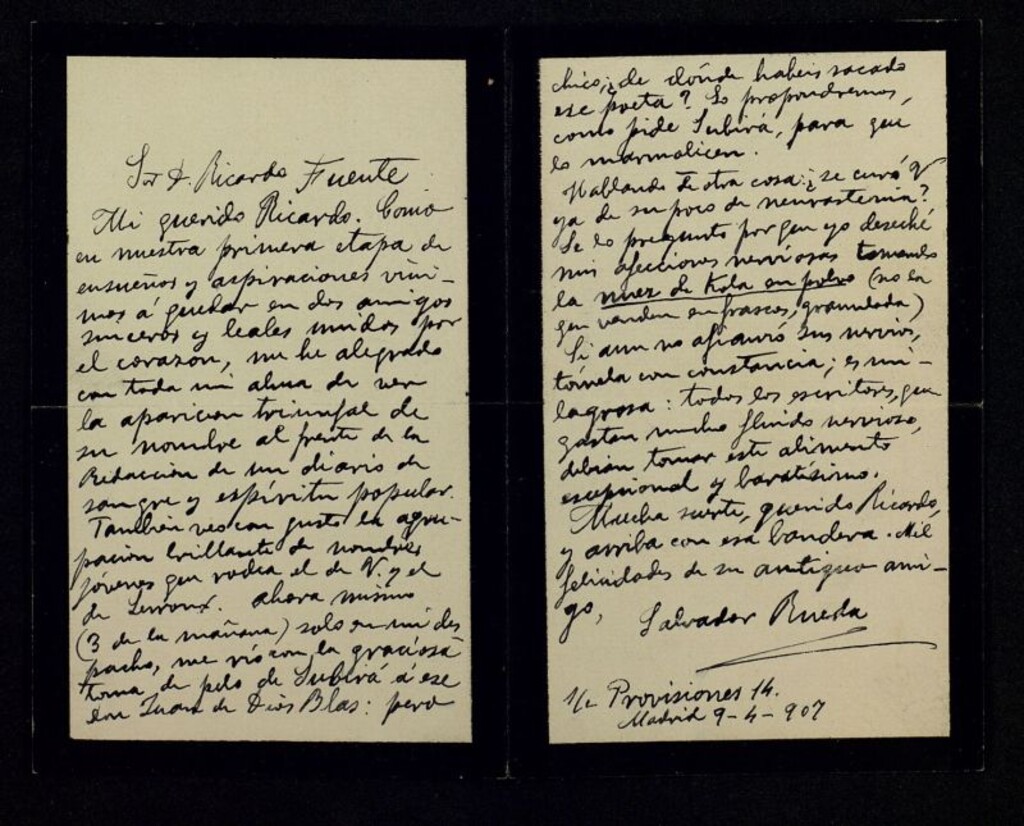 Sr. D. Ricardo Fuente
Mi querido Ricardo. Como
en nuestra primera etapa de
ensueños y aspiraciones vini-
mos á quedar en dos amigos
sinceros y leales unidos por
el corazón, me he alegrado
con toda mi alma de ver
la aparicion triunfal de
su nombre al frente de la
Redacción de un diario de
sangre y espíritu popular.
También veo con gusto la agru-
pación brillante de nombres
jóvenes que rodea el de V. y el
de Lerroux. Ahora mismo
(3 de la mañana) solo en mi des
pacho, me río con la graciosa
toma de pelo de Subirá á ese
don Juan de Dios Blas: pero
chico, ¿de dónde habeis sacado
ese poeta? Lo propondremos,
como pide Subirá, para que
lo marmolicen.
Hablando de otra cosa: ¿se curó V
ya de su poco de neurastenia?
Se lo pregunto porque yo deseché
mis afecciones nerviosas tomando
la nuez de Kola en polvo (no la
que venden en frascos, granulada)
Si aun no afianzó sus nervios,
tómela con constancia; es mi-
lagrosa: todos los escritores, que
gastan mucho fluido nervioso,
debian tomar este alimento
excepcional y baratísimo.
Mucha suerte, querido Ricardo,
y arriba con esa bandera. Mil
felicidades de su antiguo ami-
go,
Salvador Rueda
s/c Provisiones 14.
Madrid 9-4-907